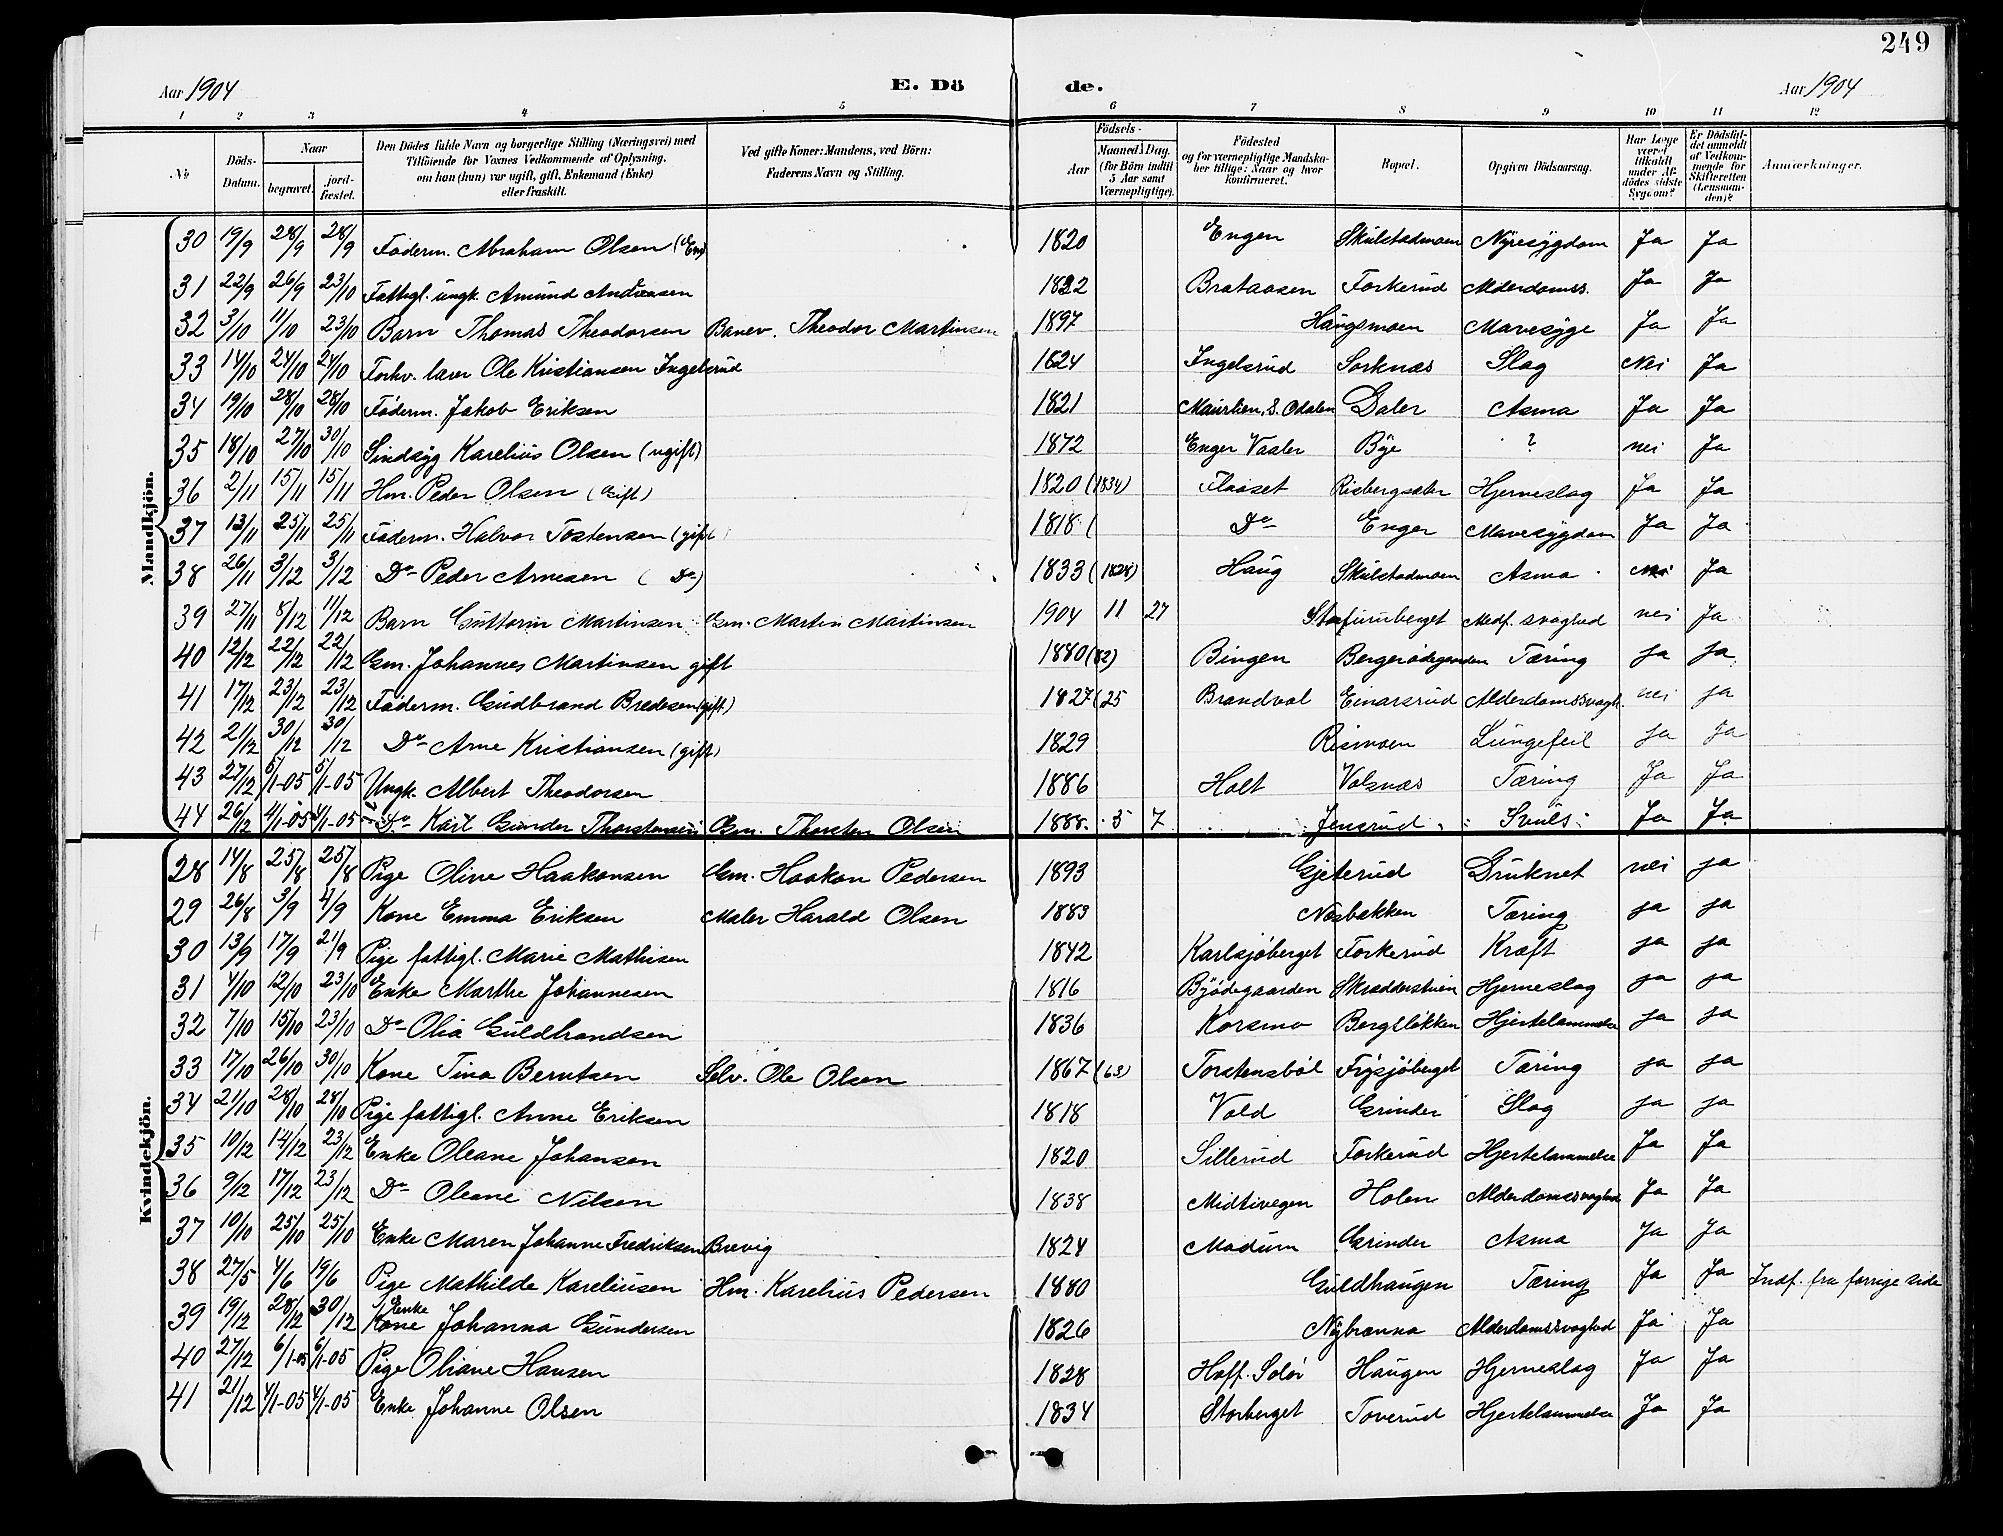 249
Aar 1904 E. Dö de. Aar 1904
1 2 3 4 5 6 7 8 9 10 11 12
No Döds-Datum. Naar begravet. jord-fæstet. Den Dödes fulde Navn og borgerlige Stilling (Næringsvei) med Tilföiende for Voxnes Vedkommende af Oplysning, om han (hun) var ugift, gift, Enkemand (Enke) eller fraskilt. Ved gifte Koner: Mandens, ved Börn: Faderens Navn og Stilling. Födsels- Aar Maaned. Dag. (for Börn indtil 5 Aar samt Værnepligtige). Födested og for værnepligtige Mandska-ber tillige: Naar og hvor konfirmeret. Bopæl. Opgiven Dödsaarsag. Har Læge været tilkaldt under Af-dödes sidste Sygdom? Er Dödsfal-det anmeldt af Vedkom-mende for Skifteretten (Lensman-den)? Anmærkninger.
Mandkjön.
30 19/9 28/9 28/9 Föderm. Abraham Olsen (Em) 1820 Engen Skulstadmoen Nyresygdom Ja Ja
31 22/9 26/9 23/10 Fattigl. ungk. Amund Andreasen 1822 Brataasen Torkerud Alderdomss. Ja Ja
32 3/10 11/10 23/10 Barn Thomas Theodorsen Banev. Theodor Martinsen 1897 Haugsmoen Mavesyge Ja Ja
33 14/10 24/10 24/10 Forhv. lærer Ole Kristiansen Ingelsrud 1824 Ingelsrud Sorknæs Slag Nei Ja
34 19/10 28/10 28/10 Föderm. Jakob Eriksen 1821 Maurlien, S. Odalen Daler Asma Ja Ja
35 18/10 27/10 30/10 Sindsyg Karelius Olsen (ugift) 1872 Enger Vaaler Bye ? nei Ja
36 2/11 15/11 15/11 Hm. Peder Olsen (Gift) 1820 (1834) Flaaset Risbergsæter Hjerneslag Ja Ja
37 13/11 25/11 25/11 Föderm. Halvor Tostensen (gift) 1818 ( Do Enger Mavesygdom Ja Ja
38 26/11 3/12 3/12 Do Peder Arnesen ( Do) 1833 (1828) Haug Skulstadmoen Asma Nei Ja
39 27/11 8/12 11/12 Barn Guttorm Martinsen Gm. Martin Martinsen 1904 11 27 Storfuruberget Medf. svaghed nei Ja
40 12/12 22/12 22/12 Gm. Johannes Martinsen gift 1880 (82) Bingen Bergerödegaarden Tæring Ja Ja
41 17/12 23/12 23/12 Föderm. Gudbrand Bredesen (gift) 1827 (25 Brandval Einarsrud Alderdomssvagh. nei Ja
42 21/12 30/12 30/12 Do Arne Kristiansen (gift) 1829 Rismoen Lungefeil Ja Ja
43 27/12 5/1-05 5/1-05 Ungk. Albert Theodorsen 1886 Holt Volsnæs Tæring Ja Ja
44 26/12 4/1-05 4/1-05 Do Karl Gunder Thorstensen Gm. Thorsten Olsen 1888. 5 7 Jensrud Svulst Ja Ja
Kvindekjön.
28 14/8 25/8 25/8 Pige Oline Haakonsen Gm. Haakon Pedersen 1893 Gjeterud Druknet nei Ja
29 26/8 3/9 4/9 Kone Emma Eriksen Maler Harald Olsen 1883 Næsbækken Tæring Ja Ja
30 13/9 17/9 21/9 Pige fattigl. Marie Mathisen 1842 Karlsjöberget Torkerud Kræft Ja Ja
31 4/10 12/10 23/10 Enke Marthe Johannesen 1816 Byödegaarden Skrædderstuen Hjerneslag Ja Ja
32 7/10 15/10 23/10 Do Olia Guldbrandsen 1836 Korsmo Bergslökken Hjertelammelse Ja Ja
33 17/10 26/10 30/10 Kone Tina Berntsen Selv. Ole Olsen 1867 (63) Torstensböl Frysjöberget Tæring Ja Ja
34 21/10 28/10 28/10 Pige fattigl. Anne Eriksen 1818 Vold Grinder Slag Ja Ja
35 10/12 14/12 23/12 Enke Oleane Johansen 1820 Sillerud Torkerud Hjertelammelse Ja Ja
36 9/12 17/12 23/12 Do Oleane Nilsen 1838 Midtivegen Holen Alderdomssvaghed Ja Ja
37 10/10 25/10 25/10 Enke Maren Johanne Fredriksen Brevig 1824 Modum Grinder Asma Ja Ja
38 27/5 4/6 19/6 Pige Mathilde Kareliusen Hm. Karelius Pedersen 1880 Guldhaugen Tæring Ja Ja Indf. fra forrige side
39 19/12 28/12 30/12 Enke Kone Johanna Gundersen 1826 Nybrænna Alderdomssvaghed Ja Ja
40 27/12 6/1-05 6/1-05 Pige Oliane Hansen 1828 Hoff. Solör Haugen Hjerneslag Ja Ja
41 21/12 4/1-05 4/1-05 Enke Johanne Olsen 1834 Storberget Toverud Hjertelammelse Ja Ja